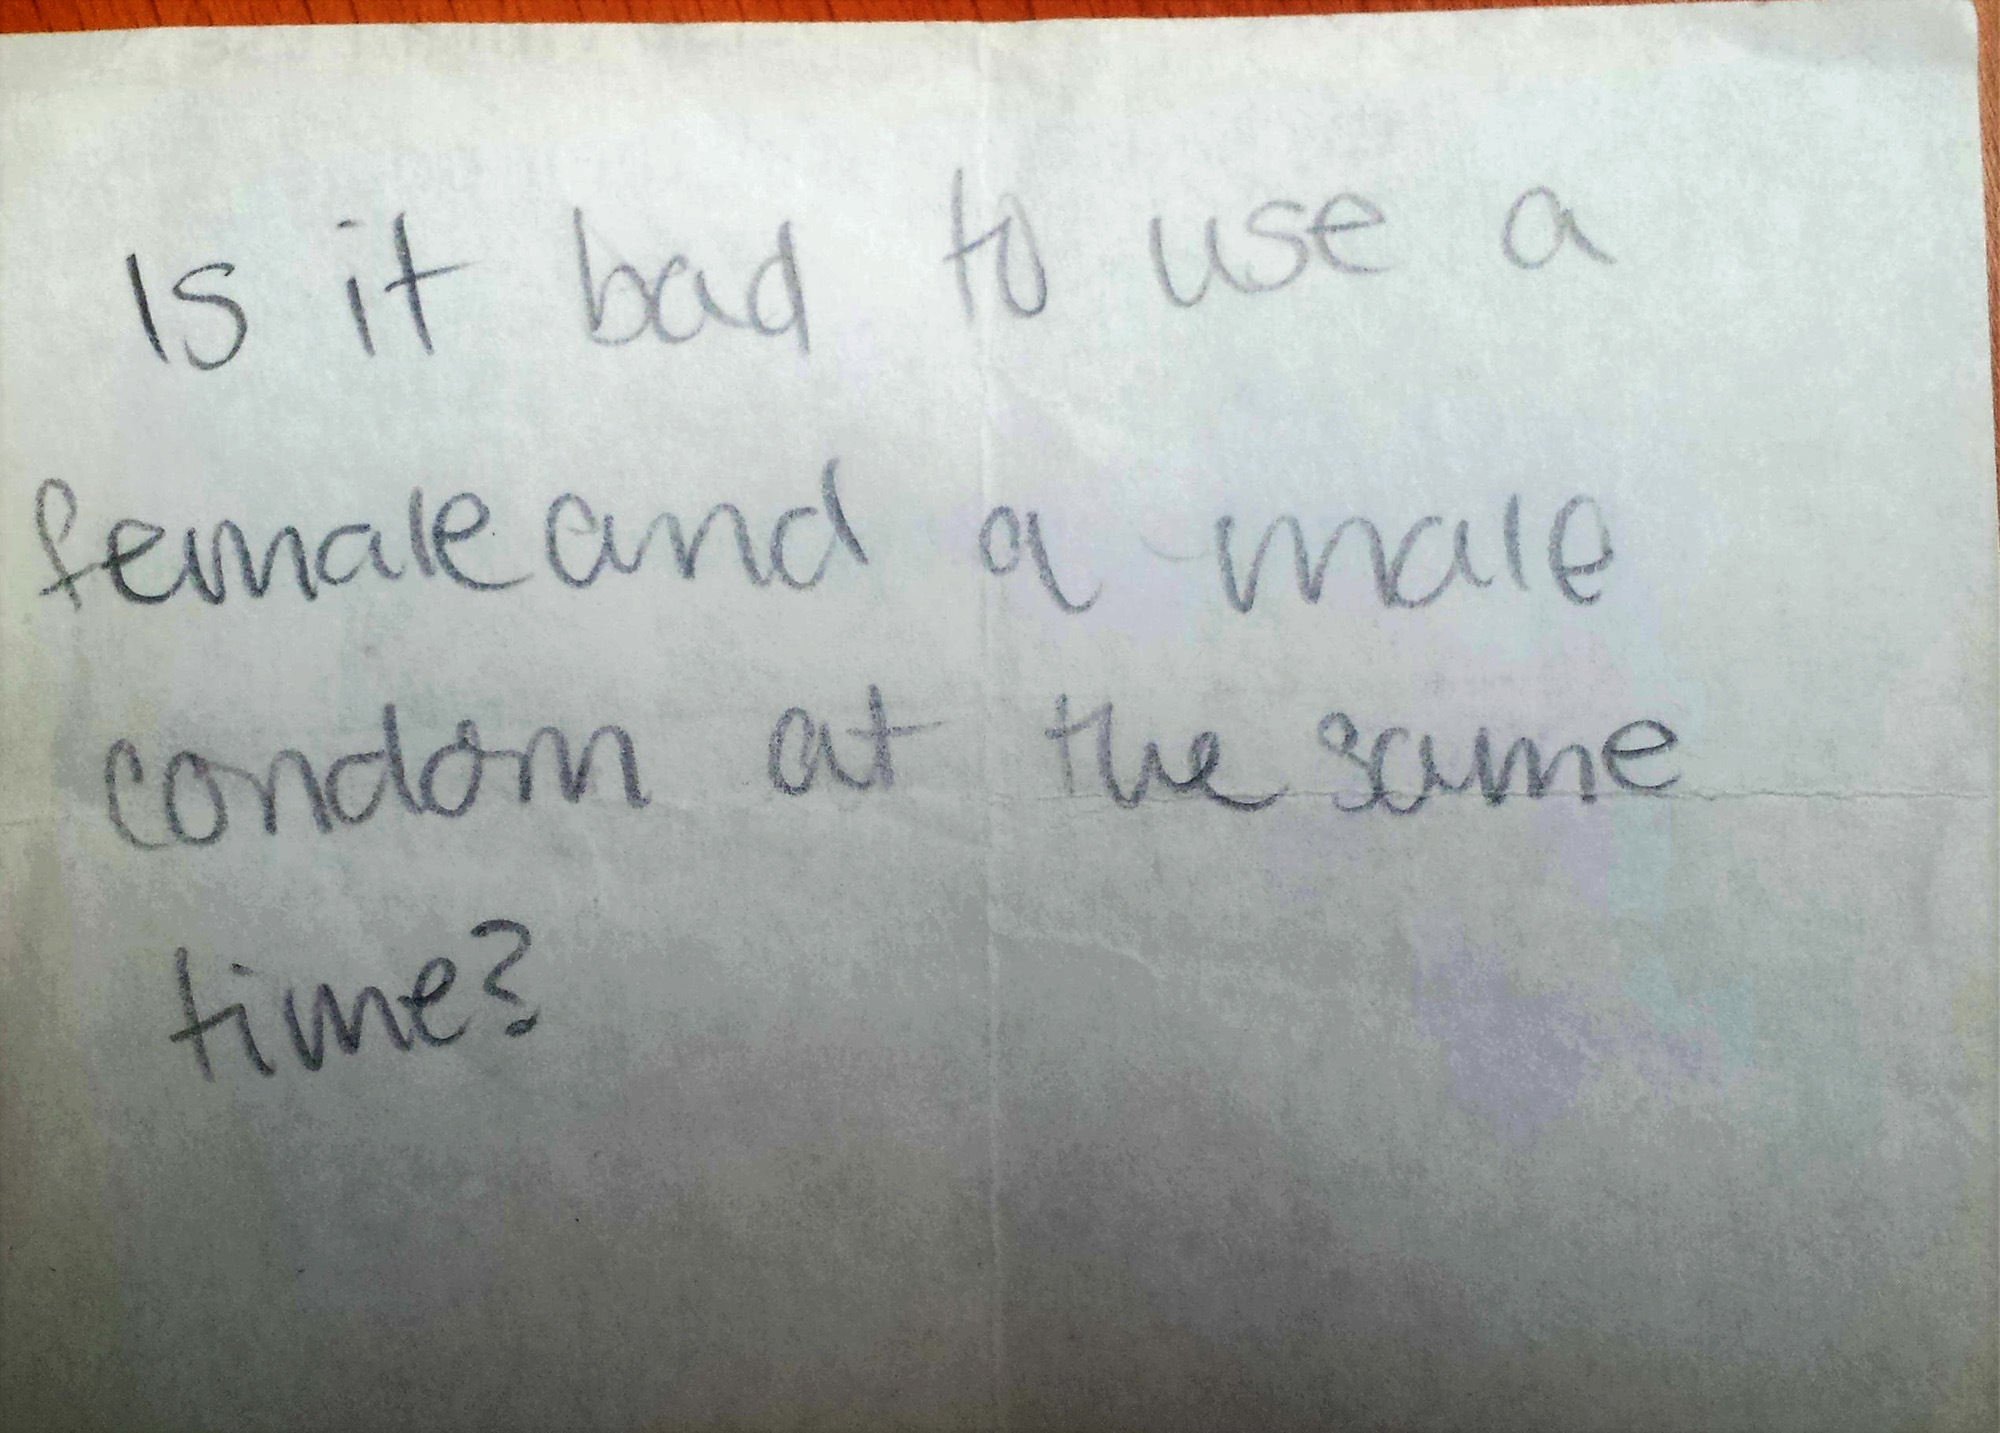 Is it bad to use a
female and a male
condom at the same
time?